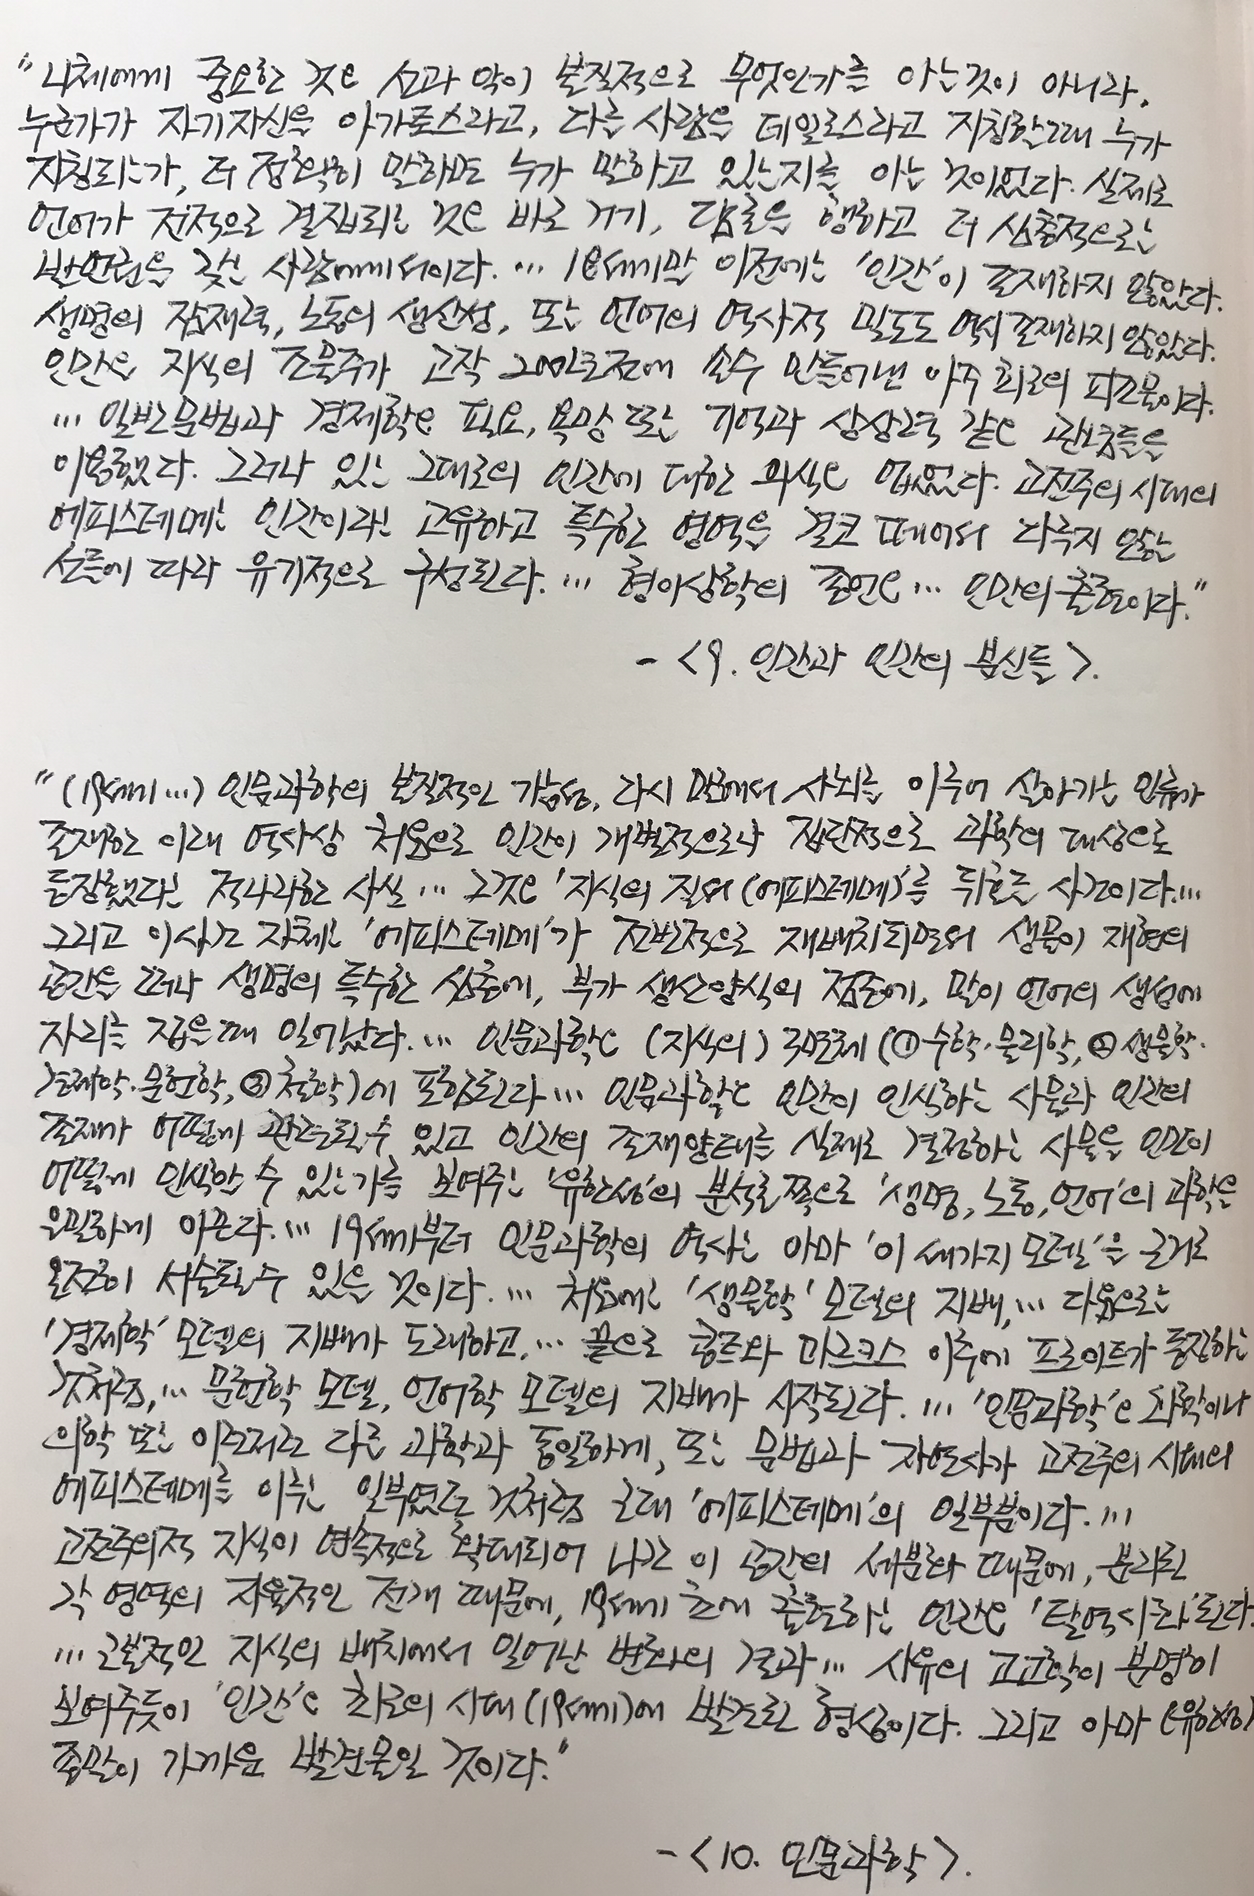 "니체에게 중요한 것은 선과 악이 본질적으로 무엇인가를 아는것이 아니라,
누군가가 자기자신을 아가토스라고, 다른 사람을 데일로스라고 지칭할때 누가
지칭되는가, 더 정확히 말하면 누가 말하고 있는지를 아는 것이었다. 실제로
언어가 전적으로 결집되는 것은 바로 거기, 담론을 행하고 더 심층적으로는
발언권을 갖는 사람에게서이다. … 18세기말 이전에는 '인간'이 존재하지 않았다.
생명의 잠재력, 노동의 생산성, 또는 언어의 역사적 밀도도 역시 존재하지 않았다.
인간은 지식의 조물주가 고작 200년전에 손수 만들어낸 아주 최근의 피조물이다.
… 일반문법과 경제학은 필요, 욕망 또는 기억과 상상력 같은 관념들을
이용했다. 그러나 있는 그대로의 인간에 대한 의식은 없었다. 고전주의 시대의
에피스테메는 인간이라는 고유하고 특수한 영역을 결코 떼어서 다루지 않는
선들에 따라 유기적으로 구성된다. … 형이상학의 종언은 … 인간의 출현이다."
- <9. 인간과 인간의 분신들>.
"(19세기 …) 인문과학의 본질적인 가능성, 다시 말해서 사회를 이루어 살아가는 인류가
존재한 이래 역사상 처음으로 인간이 개별적으로나 집단적으로 과학의 대상으로
등장했다는 적나라한 사실 … 그것은 '지식의 질서(에피스테메)'를 뒤흔든 사건이다. …
그리고 이사건 자체는 '에피스테메'가 전반적으로 재배치되면서 생물이 재현의
공간을 떠나 생명의 특수한 심층에, 부가 생산양식의 점증에, 말이 언어의 생성에
자리를 잡을때 일어났다. … 인문과학은 (지식의) 3면체(①수학·물리학, ②생물학·
경제학·문헌학, ③철학)에 포함된다 … 인문과학은 인간이 인식하는 사물과 인간의
존재가 어떻게 관련될수 있고 인간의 존재양태를 실제로 결정하는 사물을 인간이
어떻게 인식할 수 있는가를 보여주는 '유한성'의 분석론쪽으로 '생명, 노동, 언어'의 과학을
은밀하게 이끈다. … 19세기부터 인문과학의 역사는 아마 '이 세가지 모델'을 근거로
온전히 서술될수 있을 것이다. … 처음에는 '생물학' 모델의 지배, … 다음으로는
'경제학' 모델의 지배가 도래하고, … 끝으로 콩트와 마르크스 이후에 프로이트가 등장하는
것처럼, … 문헌학 모델, 언어학 모델의 지배가 시작된다. … '인문과학'은 화학이나
의학 또는 이런저런 다른 과학과 동일하게, 또는 문법과 자연사가 고전주의 시대의
에피스테메를 이루는 일부였던 것처럼 근대 '에피스테메'의 일부분이다. …
고전주의적 지식이 연속적으로 확대되어 나간 이 공간의 세분화 때문에, 분리된
각 영역의 자율적인 전개 때문에, 19세기 초에 출현하는 인간은 '탈역사화'된다.
… 근본적인 지식의 배치에서 일어난 변화의 결과 … 사유의 고고학이 분명히
보여주듯이 '인간'은 최근의 시대(19세기)에 발견된 형상이다. 그리고 아마 (유한성)
종말이 가까운 발견물일 것이다."
- <10. 인문과학>.